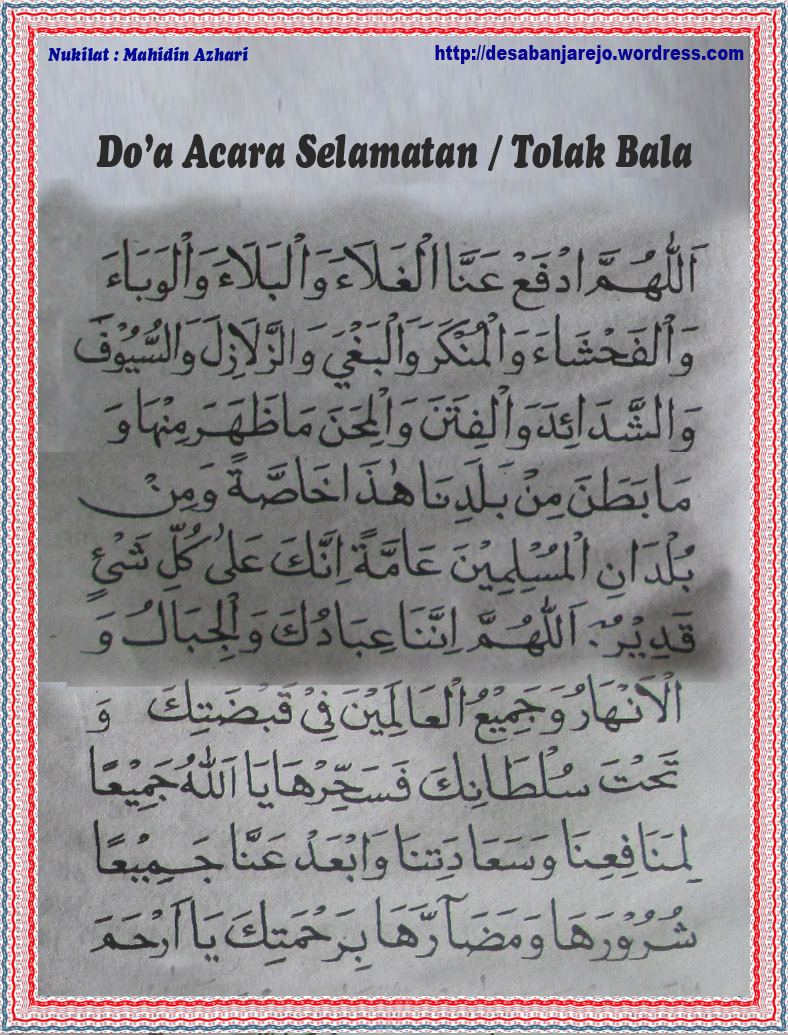 Nukilat : Mahidin Azhari
http://desabanjarejo.wordpress.com
Do'a Acara Selamatan / Tolak Bala
اَللّٰهُمَّ ادْفَعْ عَنَّا الْغَلَاءَ وَالْبَلَاءَ وَالْوَبَاءَ
وَالْفَحْشَاءَ وَالْمُنْكَرَ وَالْبَغْيَ وَالزَّلَازِلَ وَالسُّيُوْفَ
وَالشَّدَائِدَ وَالْفِتَنَ وَالْمِحَنَ مَا ظَهَرَ مِنْهَا وَ
مَا بَطَنَ مِنْ بَلَدِنَا هٰذَا خَاصَّةً وَمِنْ
بُلْدَانِ الْمُسْلِمِيْنَ عَامَّةً اِنَّكَ عَلىٰ كُلِّ شَيْئٍ
قَدِيْرٌ. اَللّٰهُمَّ اِنَّنَا عِبَادُكَ وَالْجِبَالُ وَ
الْاَنْهَارُ وَجَمِيْعُ الْعَالَمِيْنَ فِيْ قَبْضَتِكَ وَ
تَحْتَ سُلْطَانِكَ فَسَخِّرْهَا يَا اَللّٰهُ جَمِيْعًا
لِمَنَافِعِنَا وَسَعَادَتِنَا وَابْعَدْ عَنَّا جَمِيْعًا
شُرُوْرَهَا وَمَضَآرَّهَا بِرَحْمَتِكَ يَا اَرْحَمَ